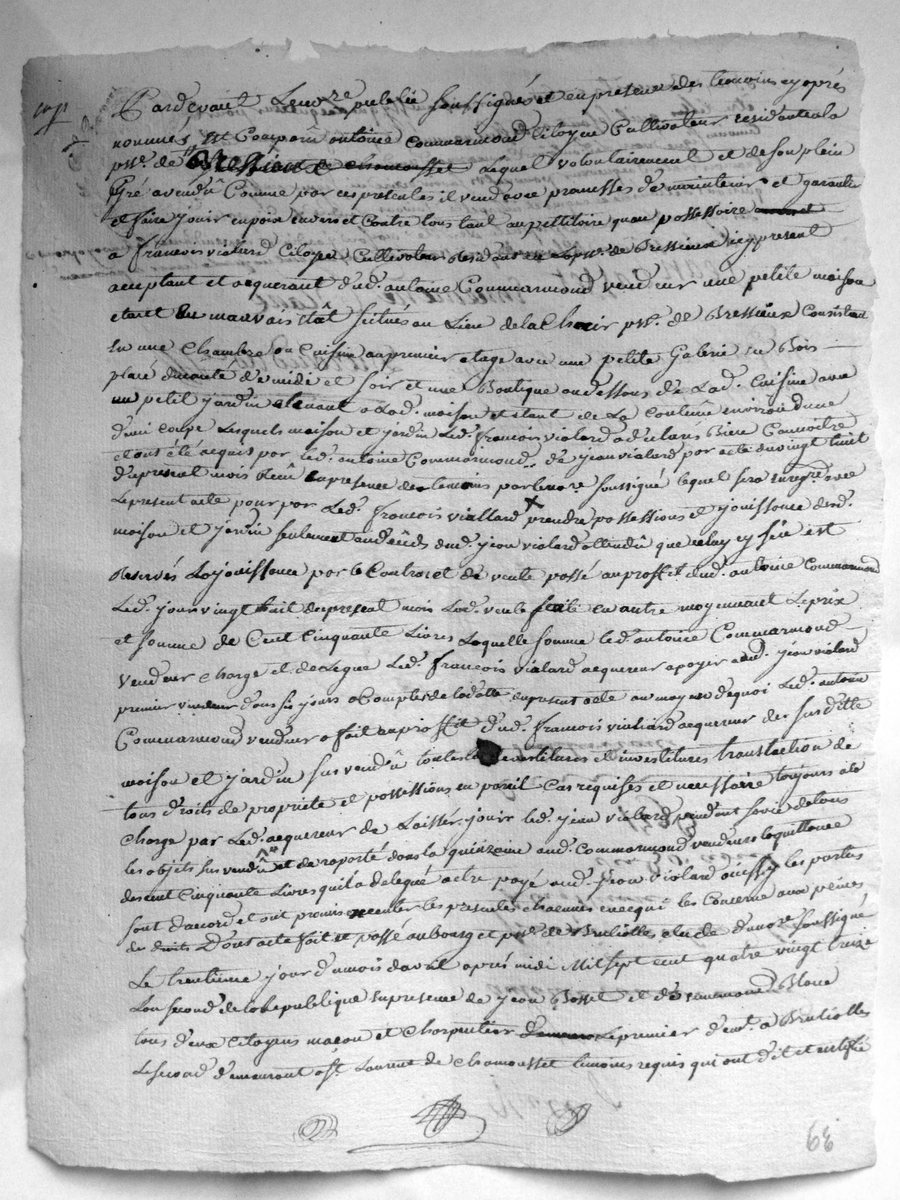 Pardevant Le nore public soussigné et en presence des temoins cy aprés
nommés est comparû antoine Commarmond Citoyen Cultivateur residant a la
psse. de Bressieux de chamousset Lequel volontairement et de son plein
Gré a vendû Comme par ces presentes il vend avec promesses de maintenir et garantir
et faire jouir en paix envers et Contre tous tant au pettitoire quau possessoire
a francois vialard Citoyen Cultivateur Residant en la psse. de Bressieux icy present
acceptant et acquerant dud. antoine Commarmond vendeur une petite maison
etant En mauvais Etât scituée au Lieu de la psse. de Bressieux Consistant
En une Chambre ou Cuisine au premier etage avec une petite Galerie en Bois
place du coté de midi et soir et une Boutique au dessous de Lad. Cuisine avec
un petit jardin attenant a Lad. maison et étant de La Contenûe environ dune
demi coupe Lesquels maison et jardin Led. francois vialard a declarés Bien Connoitre
et ont été acquis par Led. antoine Commarmond de jean vialard par acte du vingt huit
du present mois Reçû En presence des temoins par le nore soussigné lequel sera enregré avec
Le present acte pour par Led. francois viallard prendre possessions et jouissance desd.
maison et jardin seulement aud. dud. jean vialard attendû que celuy cy sen est
Reservés La jouissance par le Contract de vente passé au proffit dud. antoine Commarmond
Led. jour vingt huit du present mois Lad. vente faite en outre moyennant Le prix
et somme de Cent Cinquante Livres Laquelle somme led. antoine Commarmond
vendeur charge et delegue Led. francois vialard acquereur a payer aud. jean vialard
premier vendeur dans six jours a Compter de la datte du present acte au moyen de quoi Led. antoine
Commarmond vendeur a fait au proffit dud. francois vialiard acquereur des susdite
maison et jardin sus vendû toutes les devestitures et investitures translaction de
tous droits de propriete et possessions en pareil Cas requises et necessaire toujours a la
Charge par Led. acquereur de Laisser jouir led. jean vialard pendant sa vie de tous
les objets sus vendû et de raporté dans la quinzaine aud. Commarmond vendeur la quittance
des cent Cinquante Livres quil a delegué a etre payé aud. jean vialard aussy les parties
sont daccord et ont promis executer les presentes chacunes en ce qui les Concerne aux peines
de droits Dont acte fait et passé au bourg et psse. de Brulioles etude du nore soussigné
Le trentieme jour du mois davril aprés midi Mil sept cent quatre vingt treize
Lan second de la Republique en presence de jean Bosset et de Blanc
tous deux Citoyens maçon et Charpentier Le premier demt. a Bruliolles
Le second demeurant a st. Laurent de chamousset temoins requis qui ont dit et
63